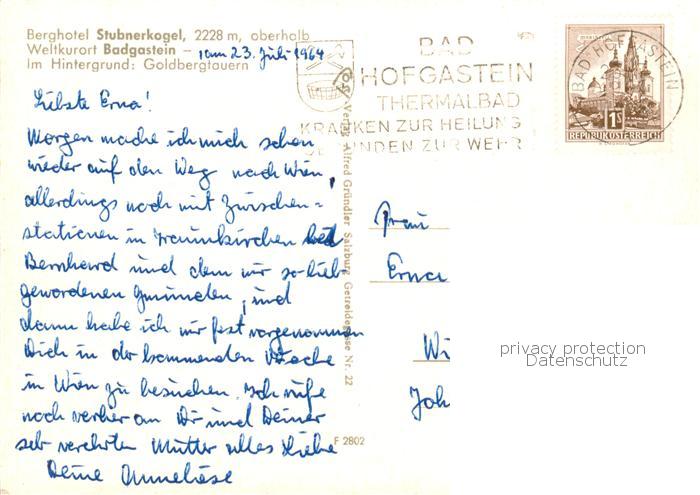 Berghotel Stubnerkogel, 2228 m, oberhalb
Weltkurort Badgastein – am 23. Juli 1964
Im Hintergrund: Goldbergtauern
Liebste Erna!
Morgen mache ich mich schon
wieder auf den Weg nach Wien,
allerdings noch mit Zwischen=
stationen in Traunkirchen bei
Bernhard und dem mir so lieb
gewordenen Gmunden, und
dann habe ich mir fest vorgenommen
Dich in der kommenden Woche
in Wien zu besuchen. Ich rufe
noch vorher an. Dir und Deiner
sehr verehrten Mutter alles Liebe
Deine Anneliese
BAD
HOFGASTEIN
THERMALBAD
KRANKEN ZUR HEILUNG
GESUNDEN ZUR WEHR
BAD HOFGASTEIN
1S
REPUBLIK ÖSTERREICH
Verlag Alfred Gründler Salzburg Getreidegasse Nr. 22
F 2802
Frau
Erna
Wi
Joh
privacy protection
Datenschutz